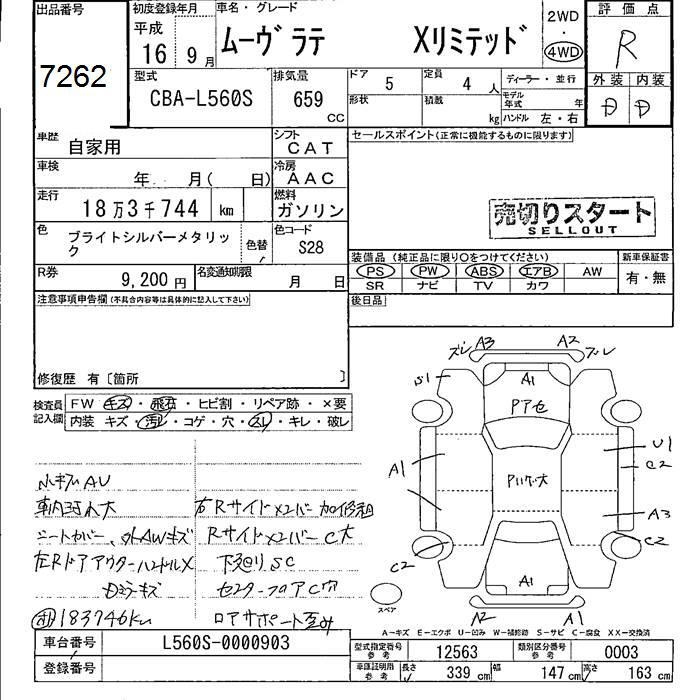 出品番号
7262
初度登録年月
平成
16 9月
車名・グレード
ムーヴ ラテ Xリミテッド
2WD
・
4WD
評価点
R
外装 内装
D D
型式
CBA-L560S
排気量
659
CC
ドア
5
定員
4人
ディーラー・並行
形状
積載
kg
モデル年式 年
ハンドル 左・右
車歴
自家用
シフト
CAT
車検
年 月( 日)
冷房
AAC
走行
18万3千744 km
燃料
ガソリン
色
ブライトシルバーメタリック
色替
色コード
S28
R券
9,200円
名変通知期限
月 日
セールスポイント(正常に機能するものに限ります)
売切りスタート
SELLOUT
装備品(純正品に限り○をつけてください)
PS PW ABS エアB AW
SR ナビ TV カワ
新車保証書
有・無
後日品
注意事項申告欄(不具合内容等は具体的に記入して下さい)
修復歴 有〔箇所 〕
検査員記入欄
FW キズ・飛石・ヒビ割・リペア跡・×要
内装 キズ・汚レ・コゲ・穴・スレ・キレ・破レ
小キズAU
車内汚れ大
シートカバー、外AWキズ
左Rドアアウターハンドル×
183746km
右Rサイド×2バー加修粗
Rサイド×2バーC大
下廻りSC
センターフロアC穴
ロアサポート歪み
ズレ A3 A2 ズレ
S1
A1
Pアセ
U1
C2
A1
Pハケ大
A3
C2
C2
A1
スペア
A2 A1
A-キズ E-エクボ U-凹み W-補修跡 S-サビ C-腐食 XX-交換済
車台番号
L560S-0000903
登録番号
型式指定番号
参考
12563
類別区分番号
参考
0003
車庫証明用
参考
長さ
339 cm
幅
147 cm
高さ
163 cm